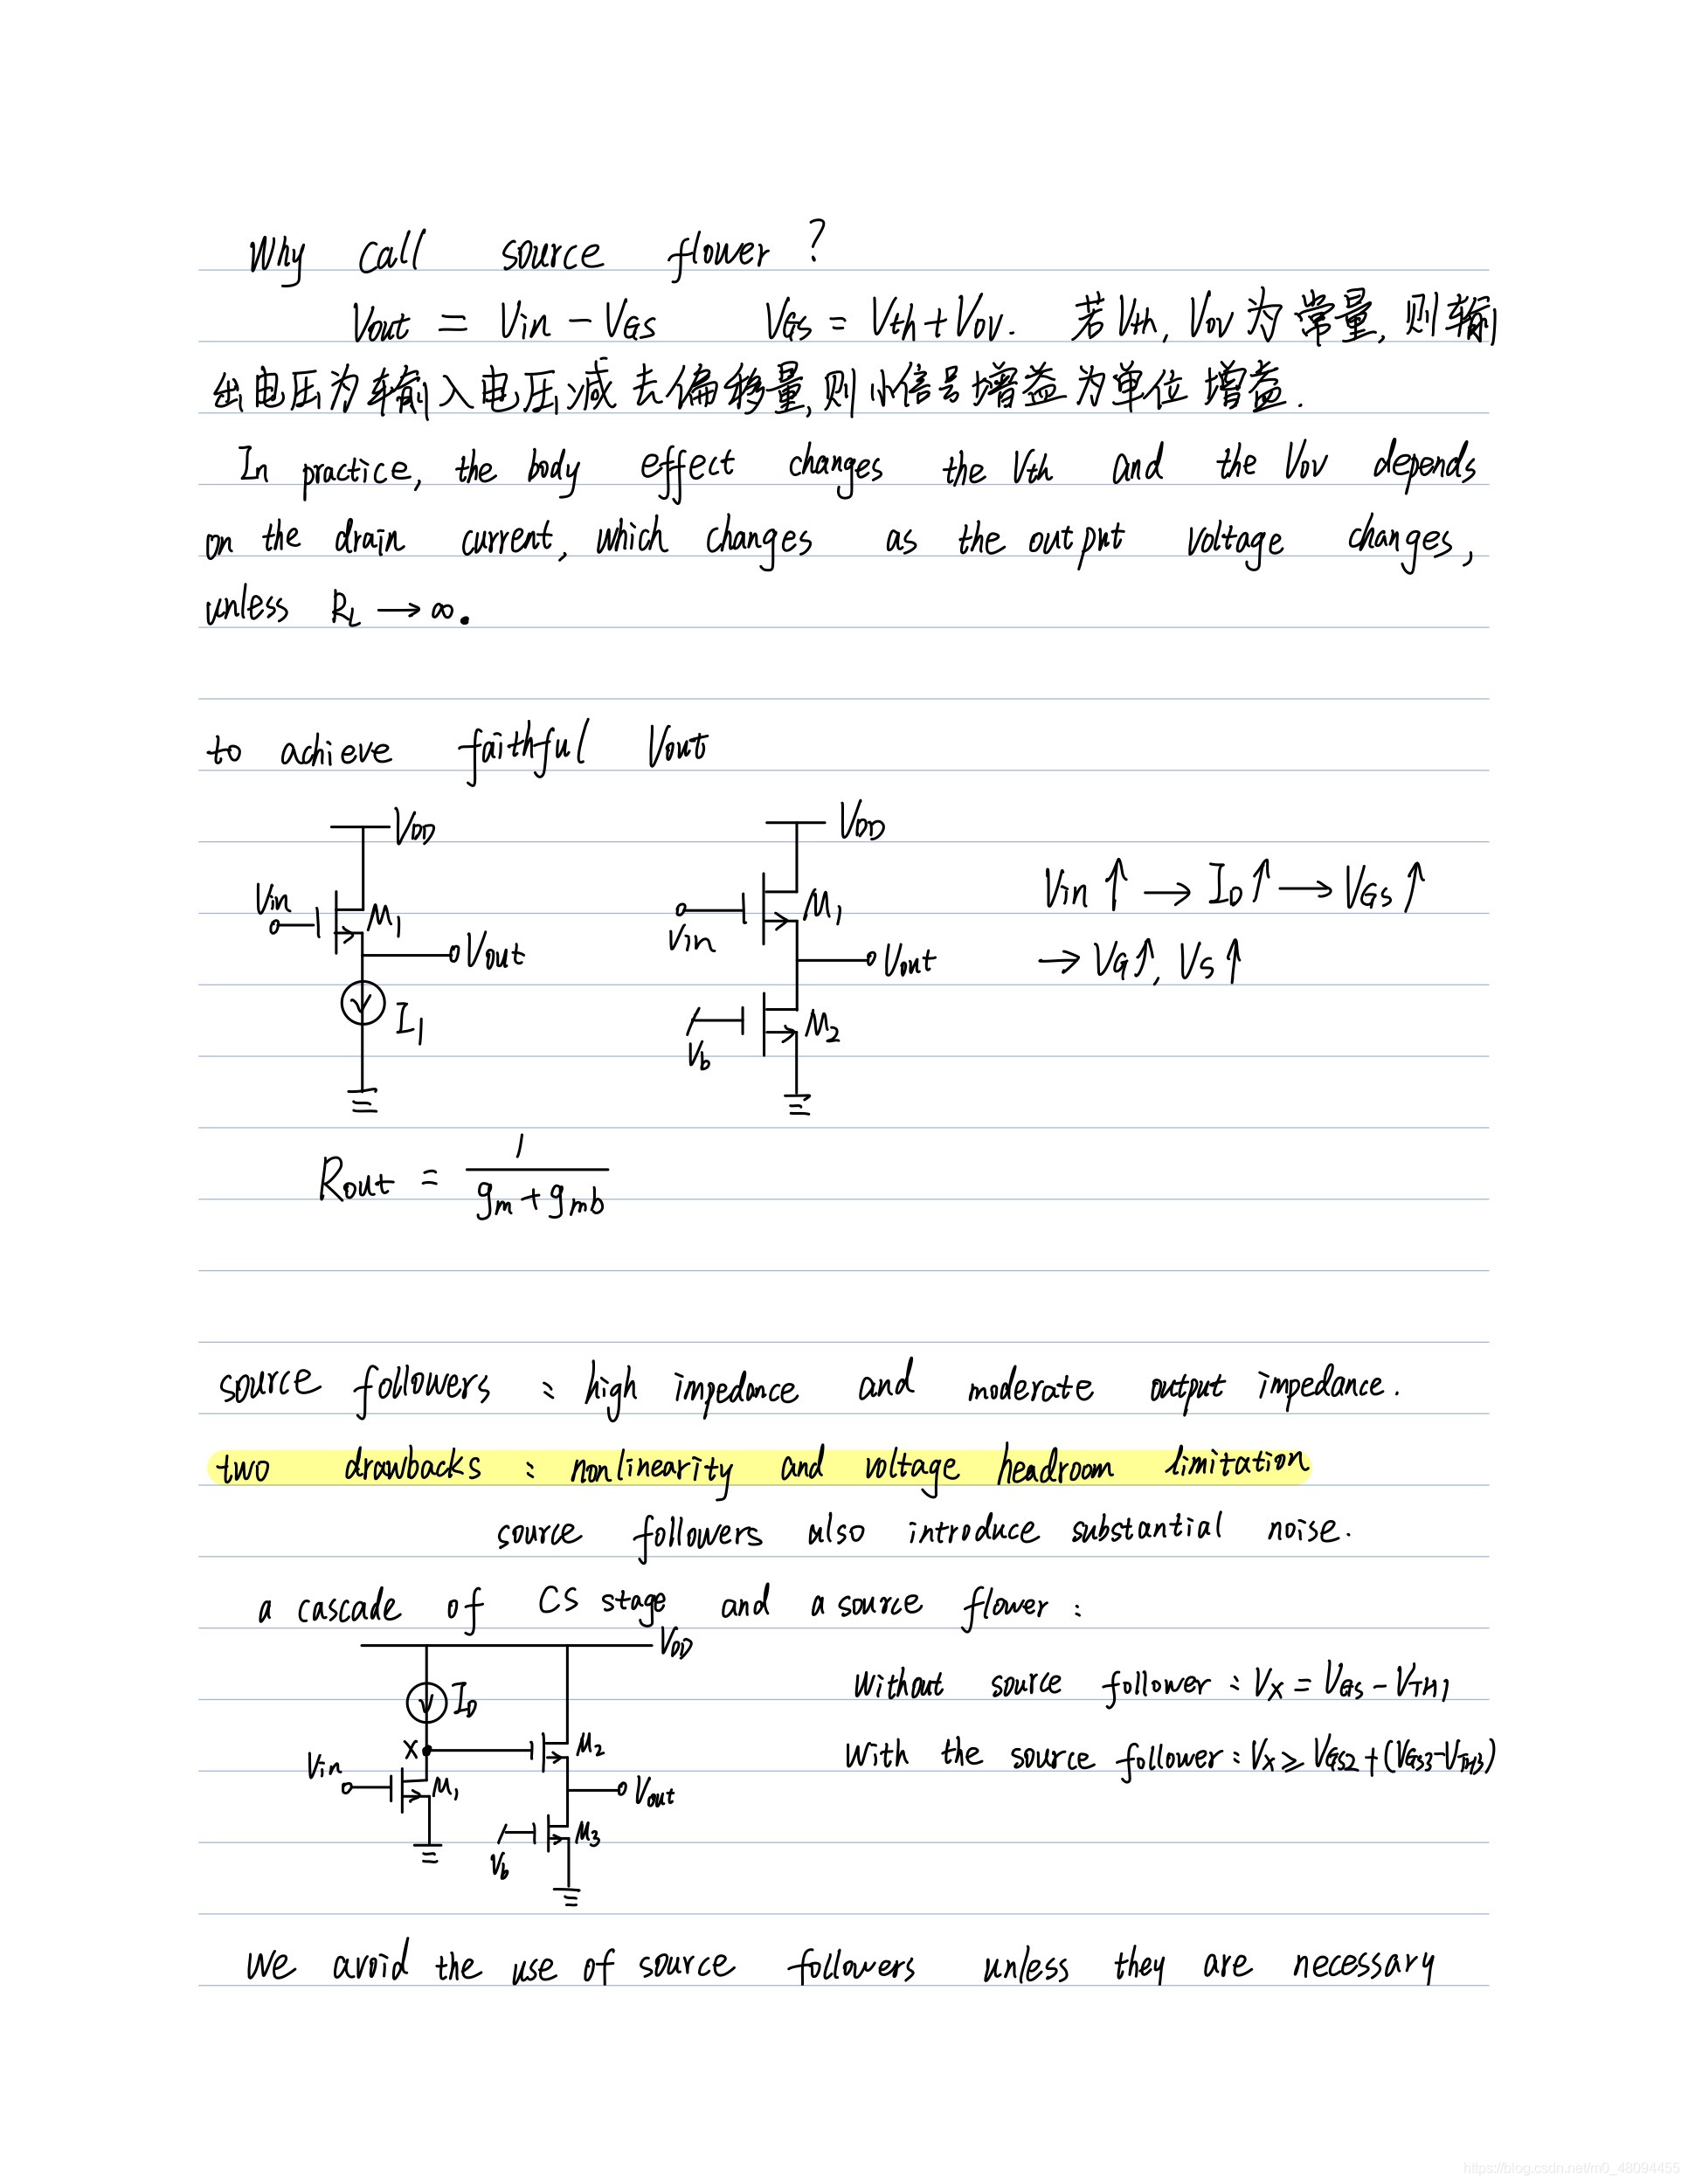 Why call source flower ?
Vout = Vin - VGS VGS = Vth + VOV. 若Vth, VOV为常量, 则输
出电压为输入电压减去偏移量, 则小信号增益为单位增益.
In practice, the body effect changes the Vth and the VOV depends
on the drain current, which changes as the output voltage changes,
unless RL → ∞.
to achieve faithful Vout
VDD VDD
Vin M1 Vout I1
Vin M1 Vout Vb M2
Vin ↑ → ID ↑ → VGS ↑
→ VG ↑, VS ↑
Rout = 1 / (gm + gmb)
source followers : high impedance and moderate output impedance.
two drawbacks : nonlinearity and voltage headroom limitation
source followers also introduce substantial noise.
a cascade of CS stage and a source flower :
VDD
ID
X M2
Vin M1 Vout
Vb M3
Without source follower : VX = VGS - VTH1
With the source follower : VX ≥ VGS2 + (VGS3 - VTH3)
We avoid the use of source followers unless they are necessary
https://blog.csdn.net/m0_48094455